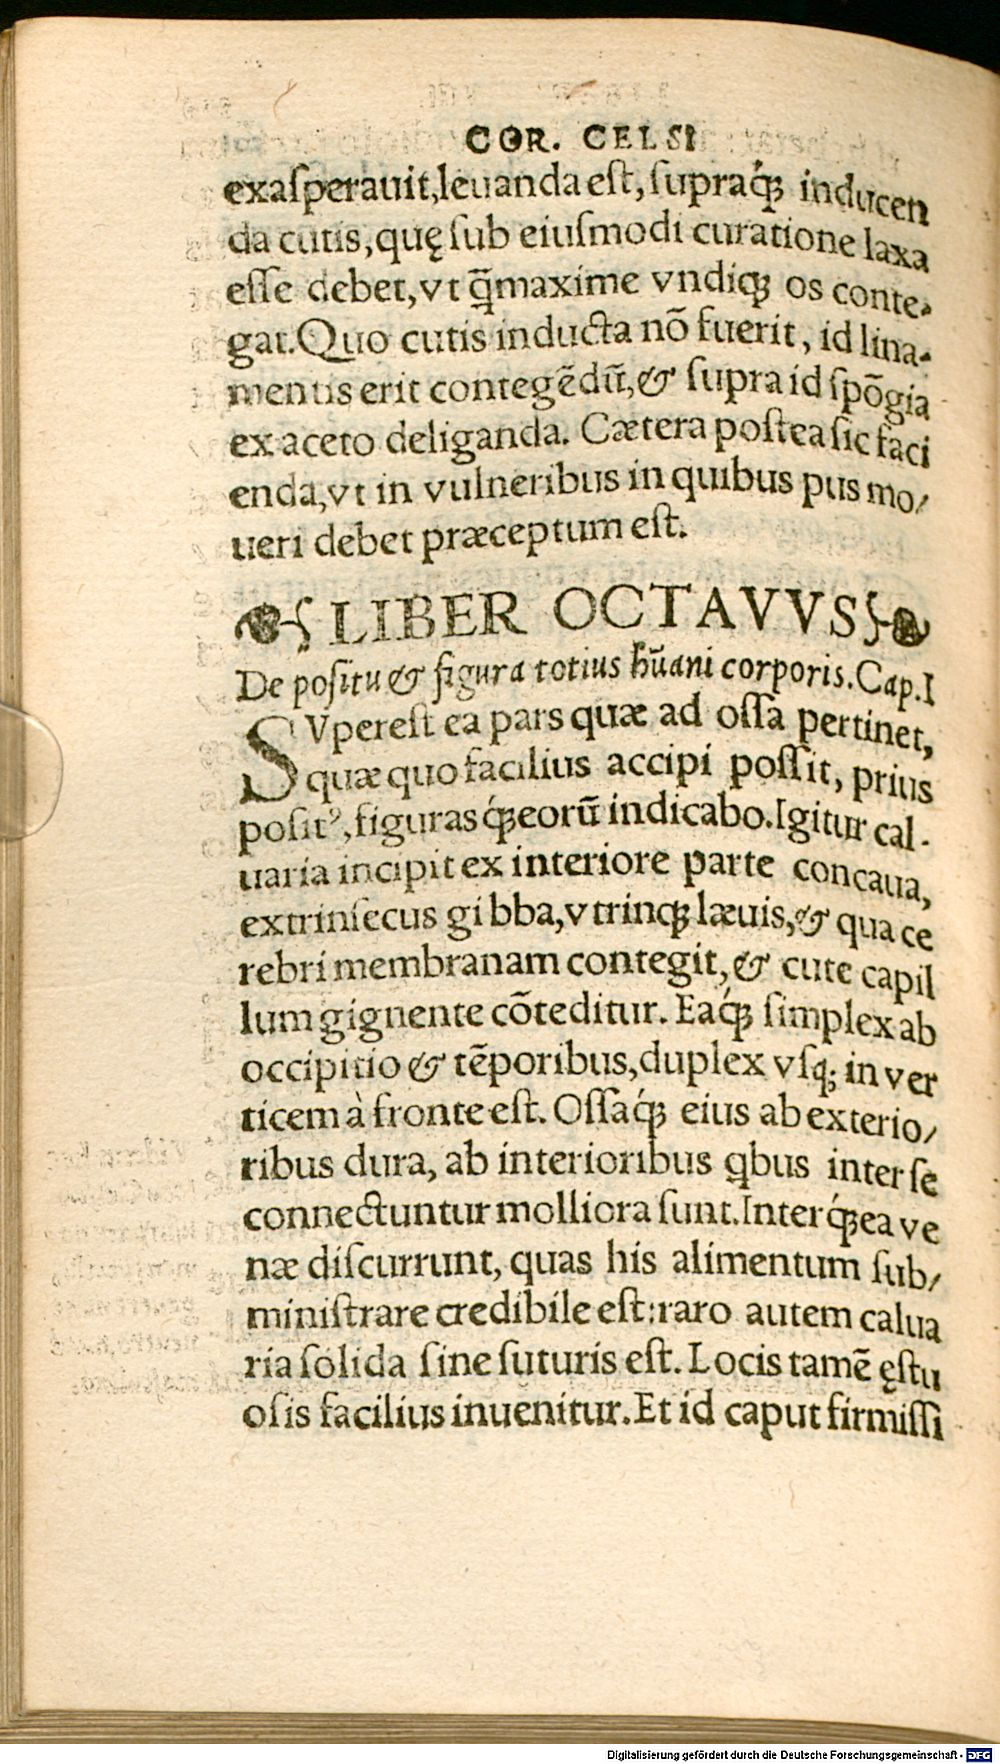 COR. CELSI
exaſperauit,leuanda eſt, ſupraq́ꝫ inducen
da cutis, quę ſub eiuſmodi curatione laxa
eſſe debet, vt q̄maxime vndiqꝫ os conte-
gat. Quo cutis inducta nō fuerit, id lina-
mentis erit contegēdū, & ſupra id ſpōgia
ex aceto deliganda. Cætera poſtea ſic faci
enda, vt in vulneribus in quibus pus mo/
ueri debet præceptum eſt.
LIBER OCTAVVS
De poſitu & figura totius hūani corporis. Cap. I
SVpereſt ea pars quæ ad oſſa pertinet,
quæ quo facilius accipi poſſit, prius
poſitꝰ, figuras q́ꝫ eorū indicabo. Igitur cal-
uaria incipit ex interiore parte concaua,
extrinſecus gibba, vtrinqꝫ læuis, & qua ce
rebri membranam contegit, & cute capil
lum gignente cōteditur. Eaq́ꝫ ſimplex ab
occipitio & tēporibus, duplex vſq; in ver
ticem à fronte eſt. Oſſaq́ꝫ eius ab exterio/
ribus dura, ab interioribus qbus inter ſe
connectuntur molliora ſunt. Interq́ꝫ ea ve
næ diſcurrunt, quas his alimentum ſub/
miniſtrare credibile eſt: raro autem calua
ria ſolida ſine ſuturis eſt. Locis tamē ęſtu
oſis facilius inuenitur. Et id caput firmiſſi
Digitalisierung gefördert durch die Deutsche Forschungsgemeinschaft - DFG